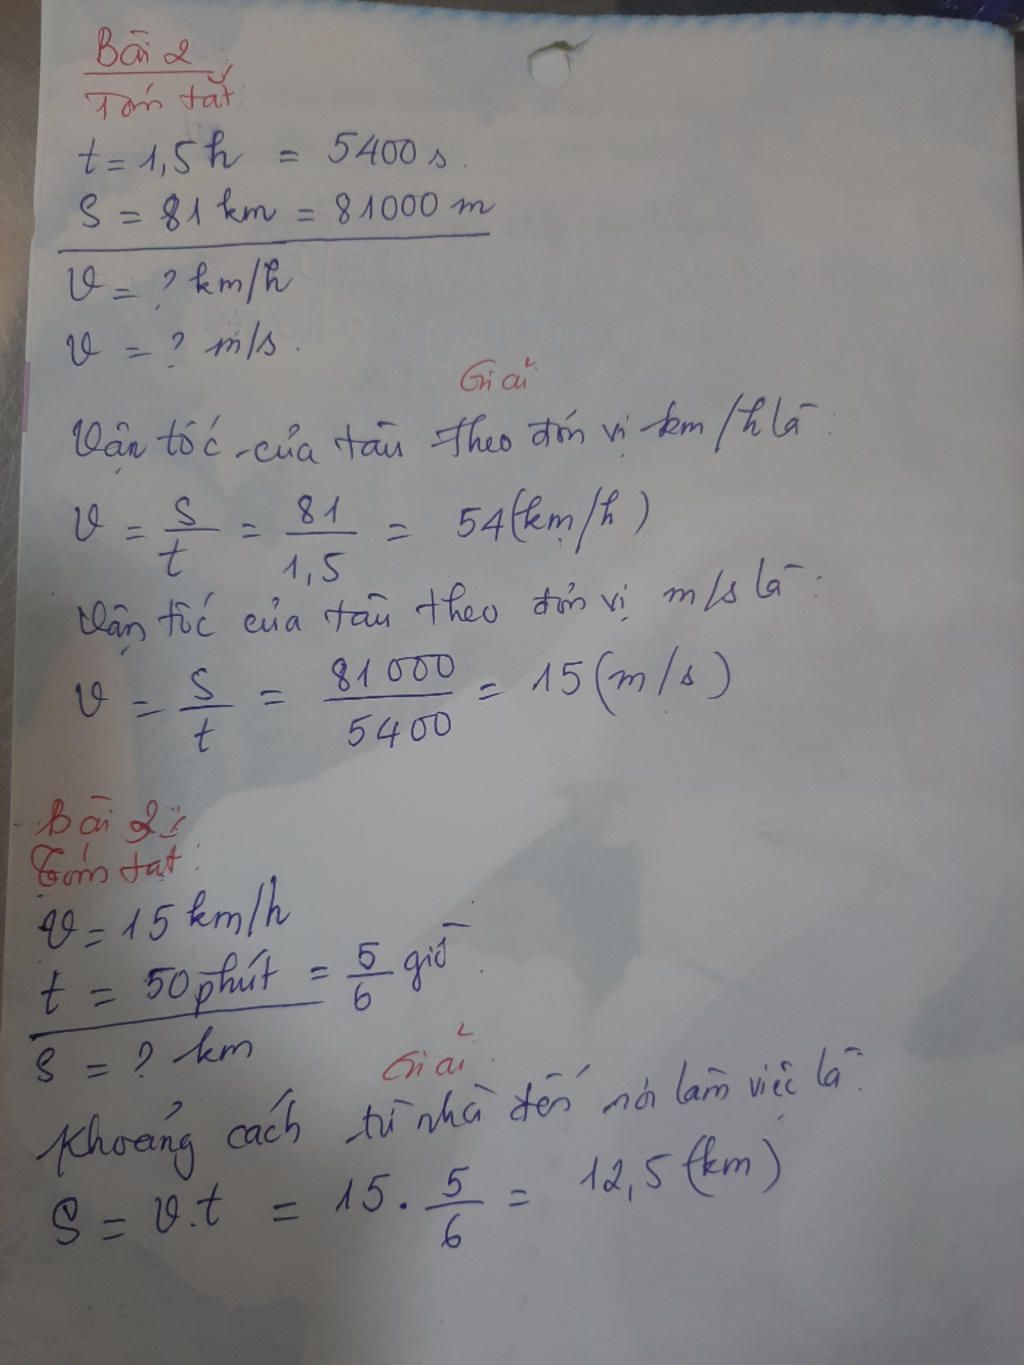 Bài 2
Tóm tắt:
t = 1,5h = 5400 s.
S = 81 km = 81000 m
v = ? km/h
v = ? m/s.
Giải
Vận tốc của tàu theo đơn vị km/h là:
v = S/t = 81/1,5 = 54 (km/h)
Vận tốc của tàu theo đơn vị m/s là:
v = S/t = 81000/5400 = 15 (m/s)
Bài 2:
Tóm tắt:
v = 15 km/h
t = 50 phút = 5/6 giờ.
S = ? km
Giải
Khoảng cách từ nhà đến nơi làm việc là:
S = v.t = 15 . 5/6 = 12,5 (km)